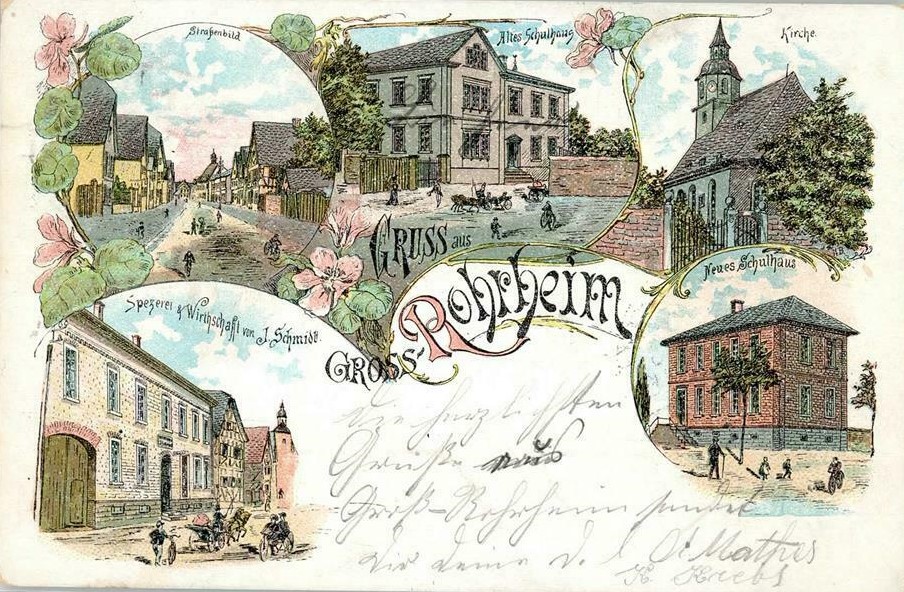 Straßenbild
Altes Schulhaus
Kirche.
GRUSS aus
GROSS-Rohrheim
Neues Schulhaus
Spezerei & Wirthschafft von J. Schmidt.
Die herzlichsten
Grüße aus
Groß-Rohrheim sendet
Dir Deine D.
Mathes
K. Krebs